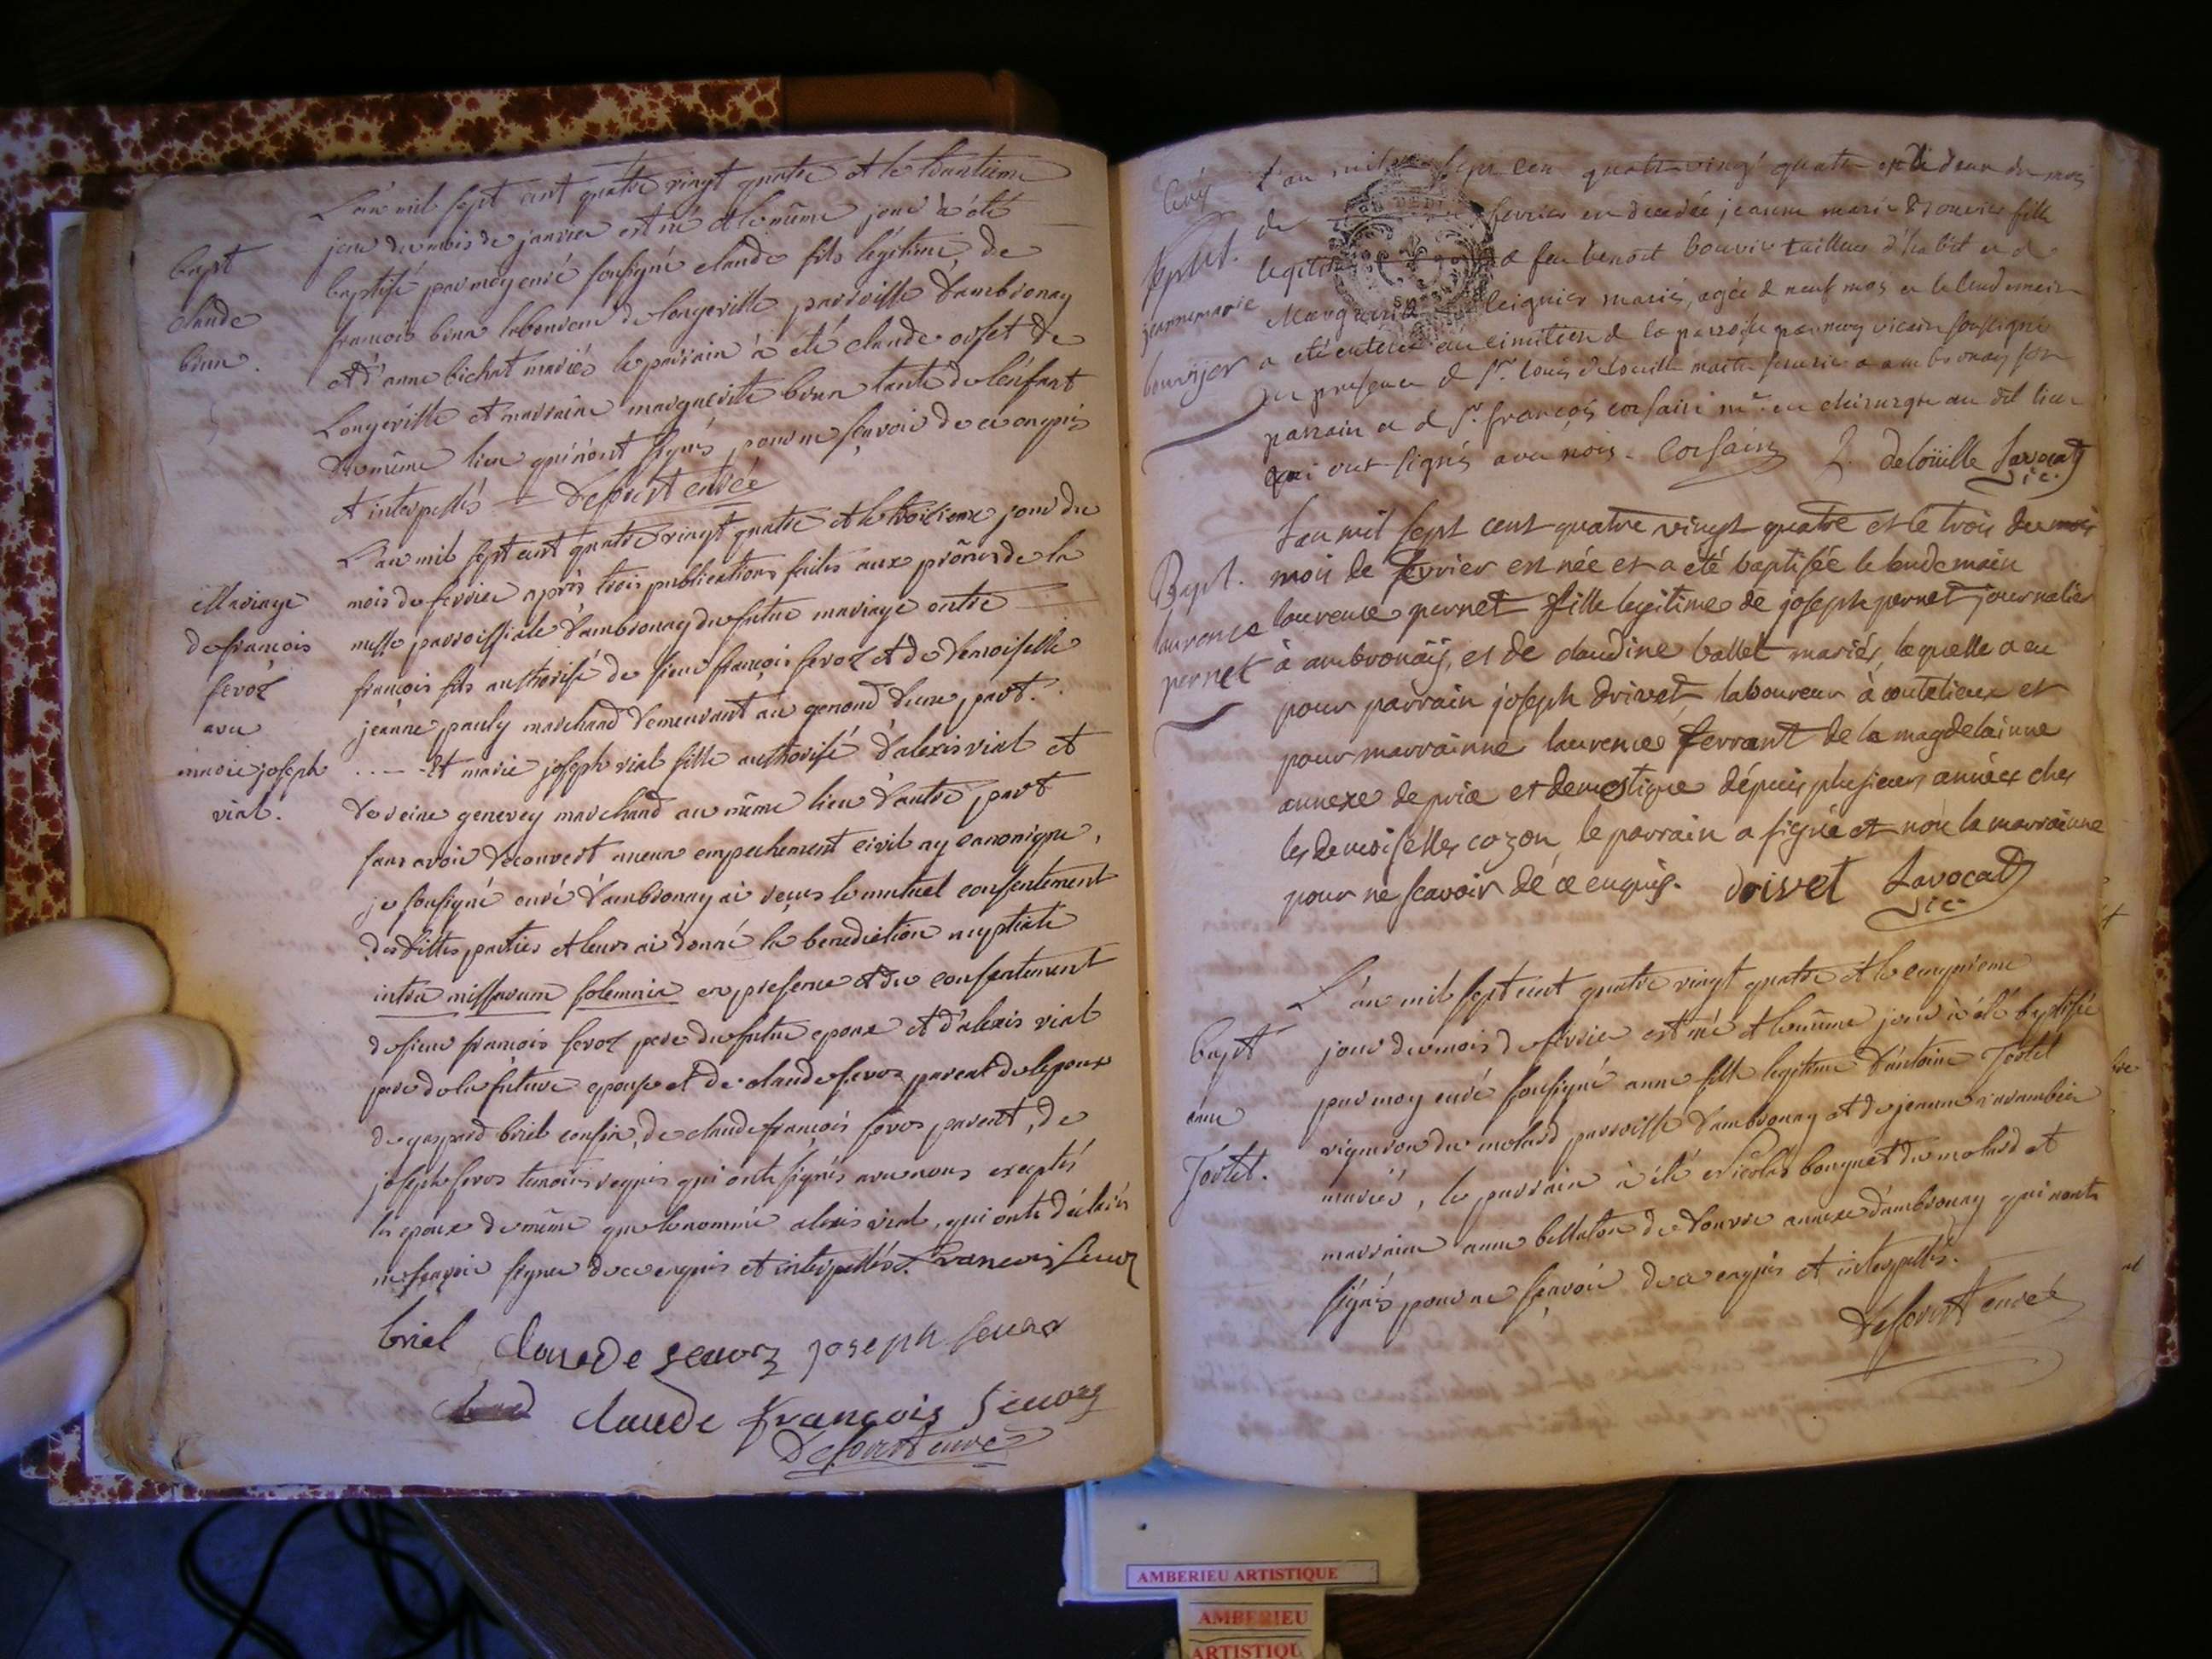 L'an mil sept cent quatre vingt quatre et le trentieme
jour du mois de janvier est né et le même jour à été
bapt
baptisé par moy curé soussigné claude fils légitime de
claude
francois brun laboureur de longeville parroisse d'ambronay
brun.
et d'anne bichat mariés le parrain à été claude oiset de
Longeville et marraine marguerite brun tante de l'enfant
du même lieu qui n'ont signés pour ne sçavoir de ce enquis
et interpellés — Desfoiret curé
L'an mil sept cent quatre vingt quatre et le troisieme jour du
Mariage
mois de fevrier après trois publications faites aux prônes de la
de francois
messe parroissiale d'ambronay du futur mariage entre
feroz
françois fils authorisé de sieur françois feroz et de demoiselle
avec
jeanne pauly marchand demeurant au genoud d'une part.
marie joseph
.... Et marie joseph vial fille authorisé d'alexis vial et
vial.
de reine genevey marchand au même lieu d'autre part
sans avoir decouvert aucun empechement civil ny canonique,
je soussigné curé d'ambronay ai reçus le mutuel consentement
des dittes parties et leurs ai donné la benediction nuptiale
intra missarum solemnia en presence et du consentement
de sieur francois feroz pere du futur epoux et d'alexis vial
pere de la future epouse et de claude feroz parent de lepoux
de gaspard briel cousin, de claude françois feroz parent, de
joseph feroz temoins requis qui onts signés avec nous exceptés
les epoux de même que le nommé alexis vial, qui onts déclarés
ne sçavoir signer de ce enquis et interpellés. francois feuoz
briel claude seuorz joseph feuor
claude françois Seuorz
Desfoiret curé
L'an mil sept cen quatre vingt quatre et le deux du mois
de fevrier est decedée jeanne marie Bouvier fille
Sepult.
legitime de feu benoit bouvier tailleur d'habit et de
jeannemarie
Marguerite leignier mariés, agée de neuf mois et le lendemain
bouvier
a eté enterré au cimetiere de la parroisse par moy vicaire soussigné
en presence de Sr. louis delouille maitre serurier a ambronay son
parrain et de Sr. françois corsain mre. en chirurgie au dit lieu
qui ont signés avec nois. Corsain L. deloüille Lavocat
vic.
L'an mil sept cent quatre vingt quatre et le trois du mois
Bapt.
mois de fevrier est née et a eté baptisée le lendemain
laurence
laurence pernet fille legitime de joseph pernet journalier
pernet
à ambronaÿ, et de claudine ballet mariés, laquelle a eu
pour parrain joseph drivet, laboureur à coutelieux et
pour marrainne laurence ferrant de la magdelainne
annexe de priæ et demestique dépuis plusieurs années ches
les demoiselles cozon, le parrain a signé et non la marrainne
pour ne scavoir dé ce enquis. drivet Lavocat
vic
L'an mil sept cent quatre vingt quatre et le cinquieme
bapt
jour du mois de fevrier est né et le même jour à été baptisée
anne
par moy curé soussigné anne fille legitime d'antoine Tortel
Tortel.
vigneron du molard parroisse d'ambronay et de jeanne
mariés, le parrain à été nicolas bouquet du molard et
marraine anne bellaton de douvre annexe d'ambronay qui nonts
signés pour ne sçavoir de ce enquis et interpellés.
Desfoiret curé
AMBERIEU ARTISTIQUE
AMBERIEU
ARTISTIQU